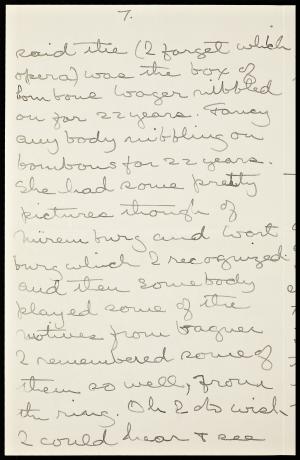 7.
said the (I forget which
opera) was the box of
bom bone Wager nibbled
on for 22 years. Fancy
any body nibbling on
bombons for 22 years.
She had some pretty
pictures though of
Niremburg and Wort
burg which I recognized.
and then somebody
played some of the
motives from Wagner
I remembered some of
them so well, from
the ring. Oh I do wish
I could hear & see